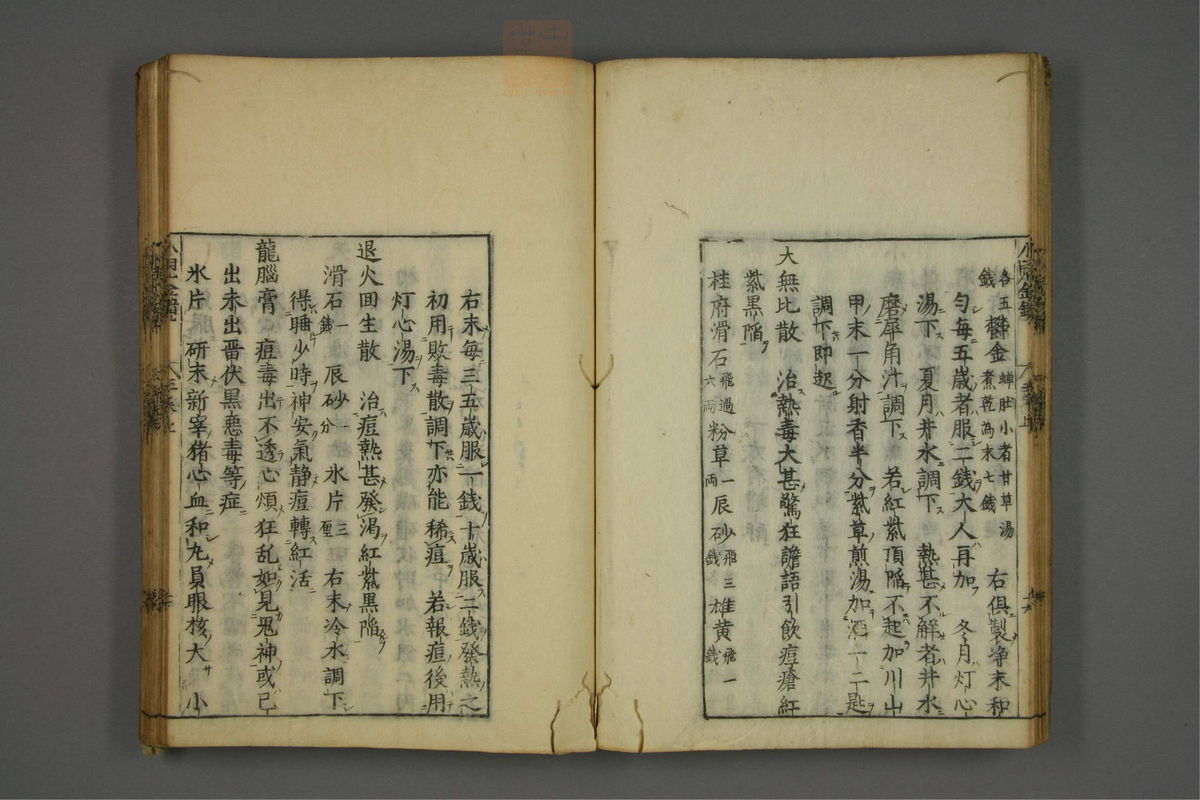 各五錢 鬱金 蝉肚小者甘草湯煮乾為末七錢 右俱製净末和
匀每五歲者服二錢大人再加 冬月灯心
湯下 夏月井水調下 熱甚不解者井水
磨犀角汁調下 若紅紫頂陷不起加川山
甲末一分射香半分紫草煎湯加酒一二匙
調下即起
大無比散 治熱毒大甚驚狂譫語引飲痘瘡紅
紫黑陷
桂府滑石 飛過六兩 粉草 一兩 辰砂 飛三錢 雄黄 飛一錢
右末每三五歲服一錢十歲服二錢發熱之
初用敗毒散調下亦能稀痘 若報痘後用
灯心湯下
退火回生散 治痘熱甚發渴紅紫黑陷
滑石 一錢 辰砂 一分 氷片 三厘 右末冷水調下
得睡少時神安氣静痘轉紅活
龍腦膏 痘毒出不透心煩狂乱如見鬼神或已
出未出晋伏黒惡毒等症
氷片 研末新宰猪心血和丸員眼核大 小